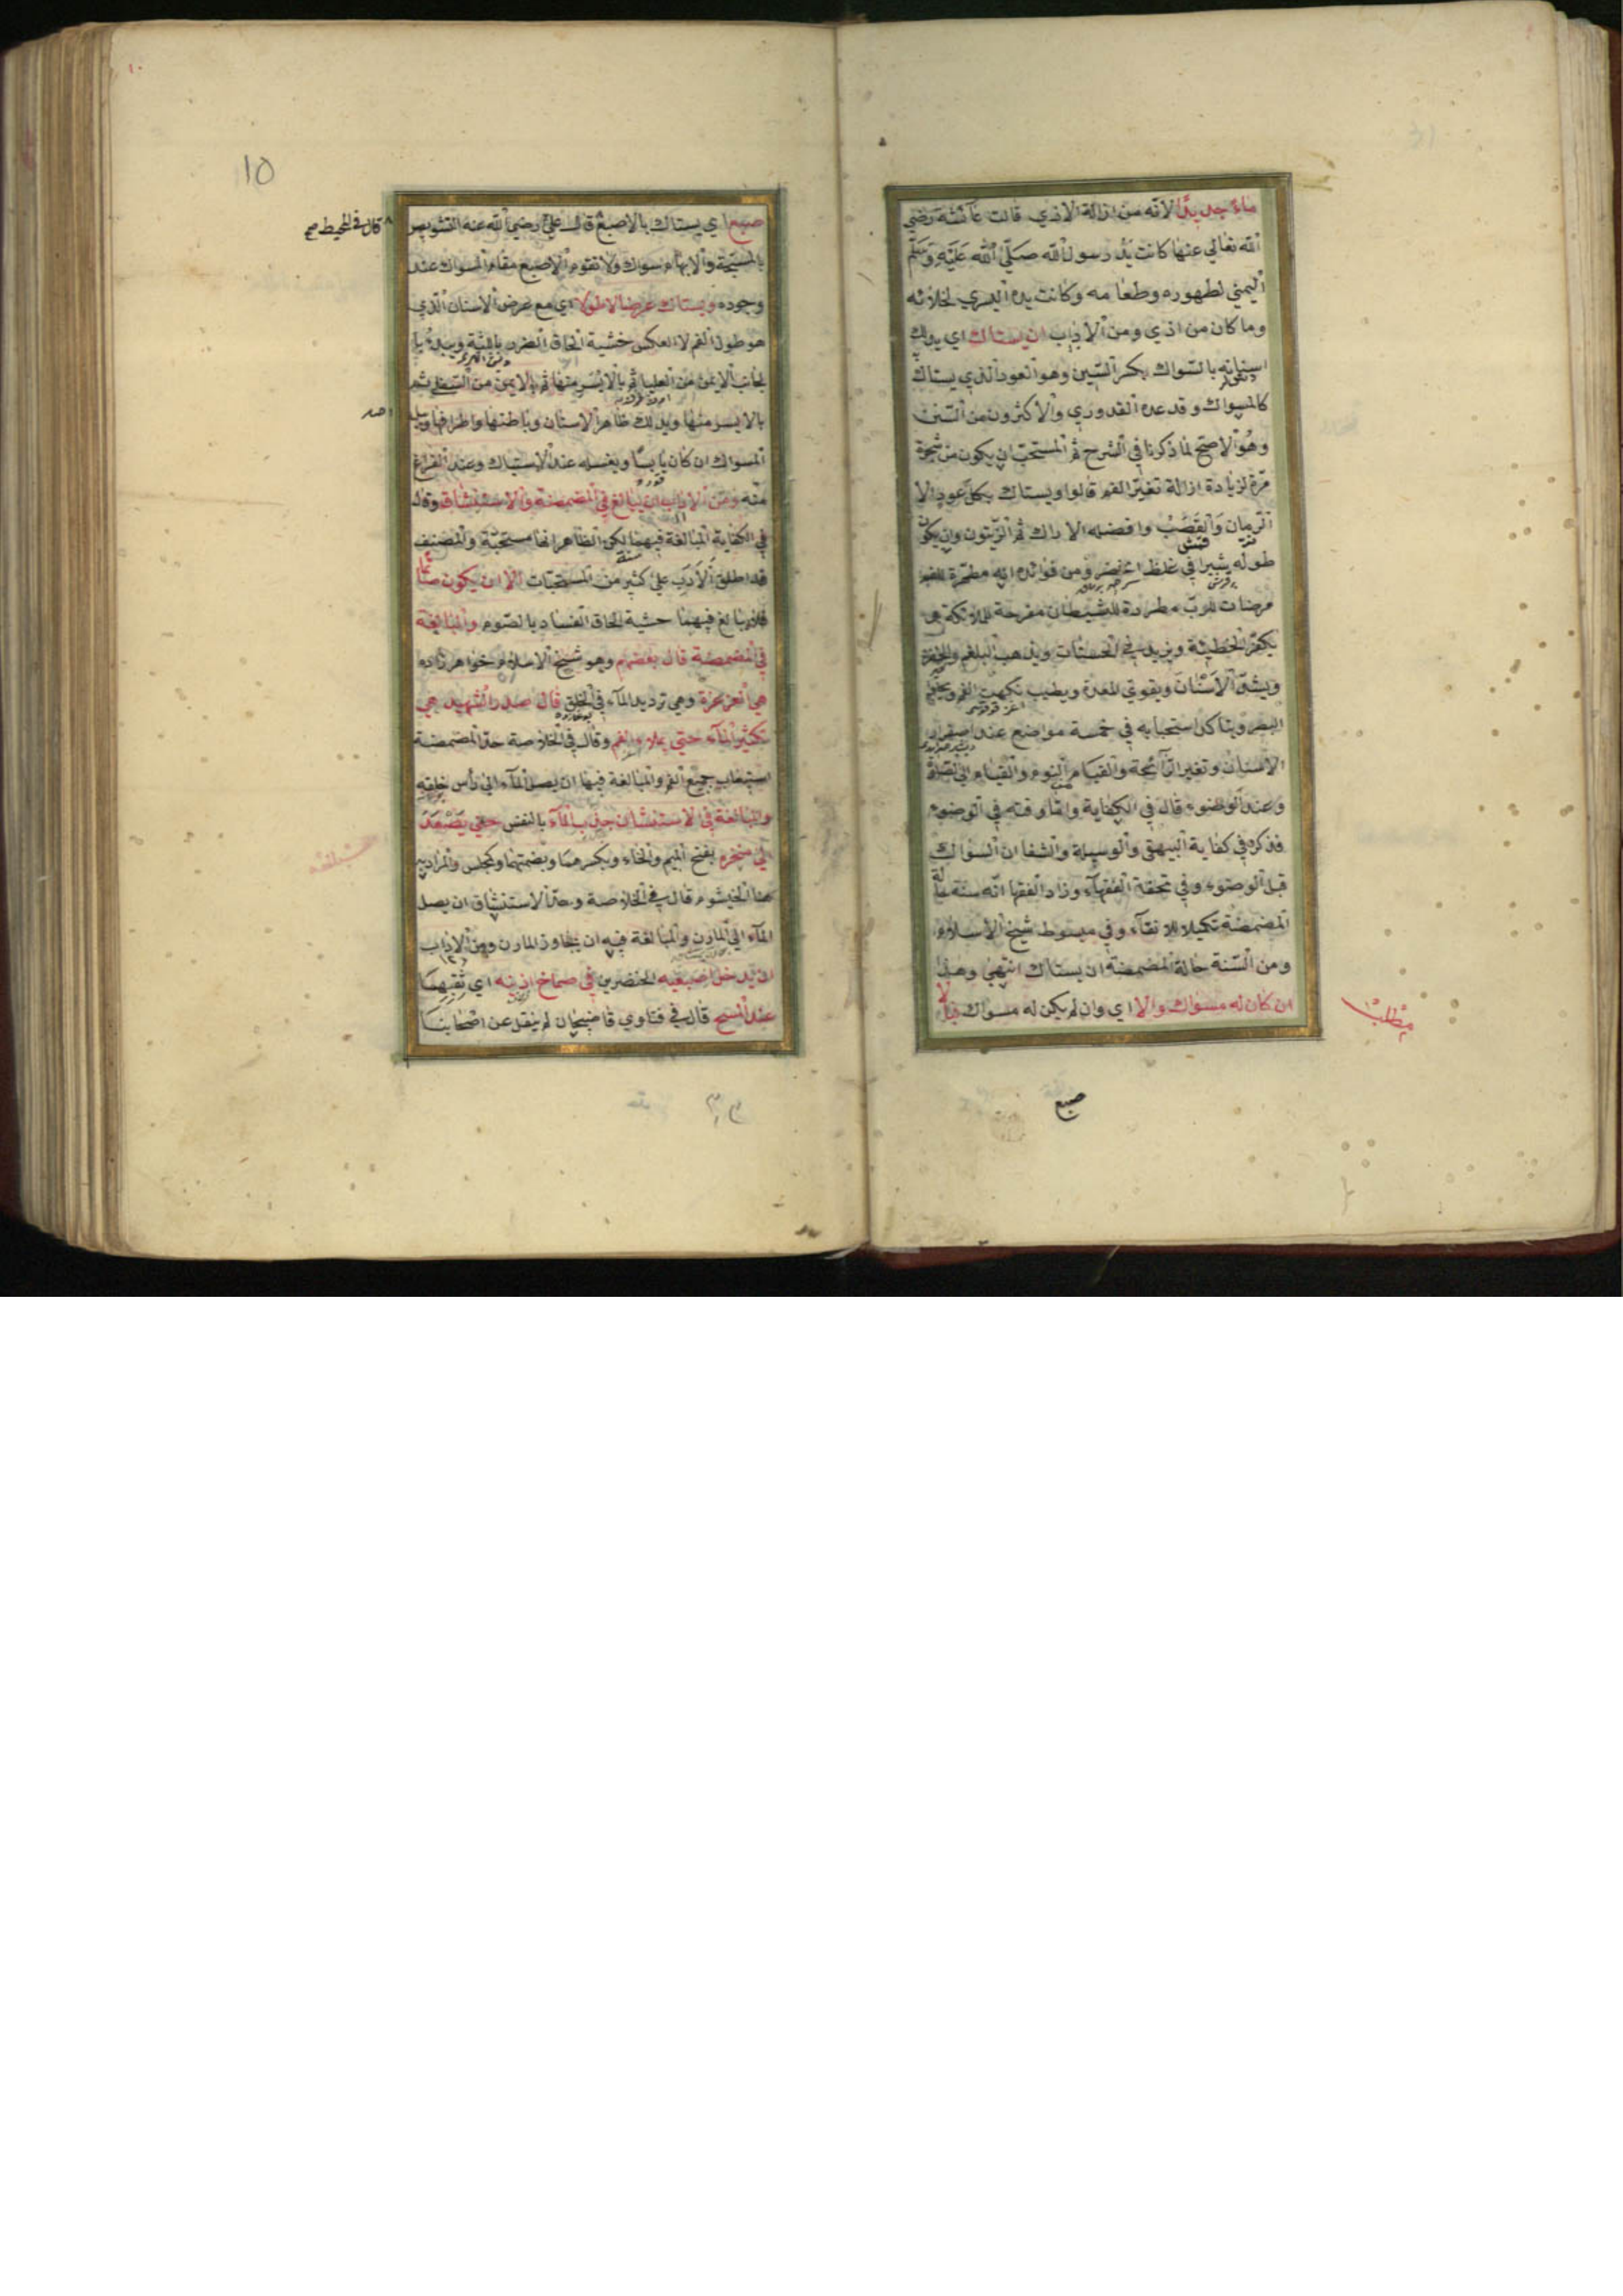 ماء جديدا لانه من ازالة الاذي قالت عآئشة رضي
الله تعالي عنها كانت يد رسول الله صلي الله عليه وسلم
اليمني لطهوره وطعامه وكانت يده اليسري لخلائه
وما كان من اذي ومن الاداب ان يستاك اي يدلك
اسنانه بالسواك بكسر السين وهو العود الذي يستاك
كالمسواك وقد عده القدوري والاكثرون من السنن
وهو الاصح لما ذكرنا في الشرح ثم المستحب ان يكون من شجرة
مرة لزيادة ازالة تغير الفم قالوا ويستاك بكل عود الا
الرمان والقصب وافضله الاراك ثم الزيتون وان يكون
طوله شبرا في غلظ الخنصر ومن فوائده انه مطهرة للفم
مرضات للرب مطردة للشيطان مفرحة للملائكة
يكفر الخطيئة ويزيد في الحسنات ويذهب البلغم والحفرة
ويشد الاسنان ويقوي المعدة ويطيب نكهت الفم ويجلي
البصر ويتاكد استحبابه في خمسة مواضع عند اصفرار
الاسنان وتغير الرآئحة والقيام من النوم والقيام الي الصلاة
وعند الوضوء قال في الكفاية واما وقته في الوضوء
فذكره في كفاية البيهقي والوسيلة والشفا ان السواك
قبل الوضوء وفي تحفة الفقهآء وزاد الفقها انه سنة حالة
المضمضة تكميلا للانقآء وفي مبسوط شيخ الاسلام
ومن السنة حالة المضمضة ان يستاك انتهي وهذا
ان كان له مسواك والا اي وان لم يكن له مسواك فبالا
مطلب
صبع
10
صبع اي يستاك بالاصبع قال علي رضي الله عنه التشويص
قال في المحيط صح
بالمسبحة والابهام سواك ولا تقوم الاصبع مقام المسواك عند
وجوده ويستاك عرضا لا طولا اي مع عرض الاسنان الذي
هو طول الفم لا العكس خشية الحاق الضرر باللثة ويبدء با
لجانب الايمن من العليا ثم بالايسر منها ثم بالايمن من السفلي ثم
بالايسر منها ويدلك ظاهر الاسنان وباطنها واطرافها ويبل
المسواك ان كان يابسا ويغسله عند الاستياك وعند الفراغ
منه ومن الاداب ان يبالغ في المضمضة والاستنشاق وقال
في الكفاية المبالغة فيهما لكن الظاهر انها مستحبة والمصنف
قد اطلق الادب علي كثير من المستحبات الا ان يكون صائما
فلا يبالغ فيهما خشية الحاق الفساد بالصوم والمبالغة
في المضمضة قال بعضهم وهو شيخ الاسلام خواهر زاده
هي الغرغرة وهي ترديد المآء في الحلق قال صدر الشهيد هي
تكثير المآء حتي يملاء الفم وقال في الخلاصة حد المضمضة
استيعاب جميع الفم والمبالغة فيها ان يصل المآء الي رأس حلقه
والمبالغة في الاستنشاق جذب المآء بالنفس حتي يصعد
الي منخره بفتح الميم والخاء وبكسرهما وبضمتهما وكمجلس والمراد به
هنا الخيشوم قال في الخلاصة وحد الاستنشاق ان يصل
المآء الي المارن والمبالغة فيه ان يجاوز المارن ومن الاداب
ان يدخل اصبعيه الخنصرين في صماخ اذنيه اي ثقبهما
عند المسح قال في فتاوي قاضيخان لم ينقل عن اصحابنا